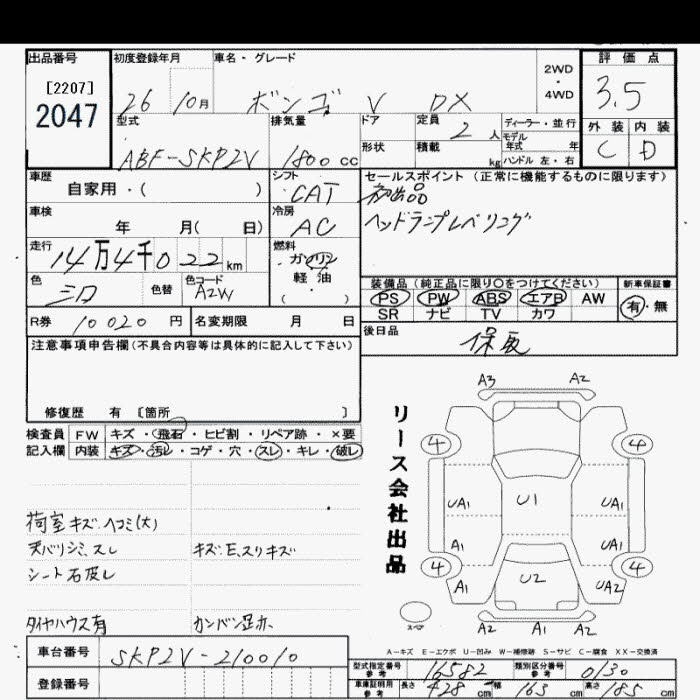 出品番号
[2207]
2047
初度登録年月
26 10月
車名・グレード
ボンゴ V DX
2WD
・
4WD
評価点
3.5
外装 内装
C D
型式
ABF-SKP2V
排気量
1800 cc
ドア
形状
定員
2人
積載
kg
ディーラー・並行
モデル
年式 年
ハンドル 左・右
車歴
自家用・( )
シフト
CAT
セールスポイント (正常に機能するものに限ります)
初出品
ヘッドランプレベリング
車検
年 月( 日)
冷房
AC
走行
14万4千022km
燃料
ガソリン
軽油
( ・ )
色
シロ
色替
色コード
A2W
装備品 (純正品に限り○をつけてください)
PS PW ABS エアB AW
SR ナビ TV カワ
新車保証書
有・無
R券 10020 円
名変期限 月 日
後日品
保取
注意事項申告欄(不具合内容等は具体的に記入して下さい)
修復歴 有 〔箇所 〕
検査員 FW キズ・飛石・ヒビ割・リペア跡・×要
記入欄 内装 キズ・汚レ・コゲ・穴・スレ・キレ・破レ
荷室キズ、ヘコミ(大)
天バリシミ、スレ
キズ、E、スリキズ
シート右皮レ
タイヤハウス有
カンバン歪ホ
リース会社出品
A3 A2
4 4
UA1 U1 UA1
A1 UA1
4 4
A1 U2 UA2
A2 A1 A2
スペア
A-キズ E-エクボ U-凹み W-補修跡 S-サビ C-腐食 XX-交換済
車台番号
SKP2V-210010
登録番号
型式指定番号
参考
16582
類別区分番号
参考
0130
車庫証明用
参考
長さ 428 cm 幅 163 cm 高さ 185 cm